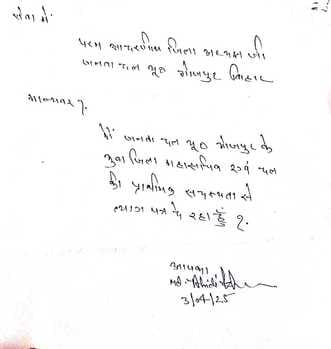 सेवा में
परम आदरणीय जिला अध्यक्ष जी
जनता दल यू० भोजपुर बिहार
मान्यवर,
मैं जनता दल यू० भोजपुर के
युवा जिला महासचिव एवं दल
की प्राथमिक सदस्यता से
त्याग पत्र दे रहा हूँ।
आपका
Md.
3/04/25